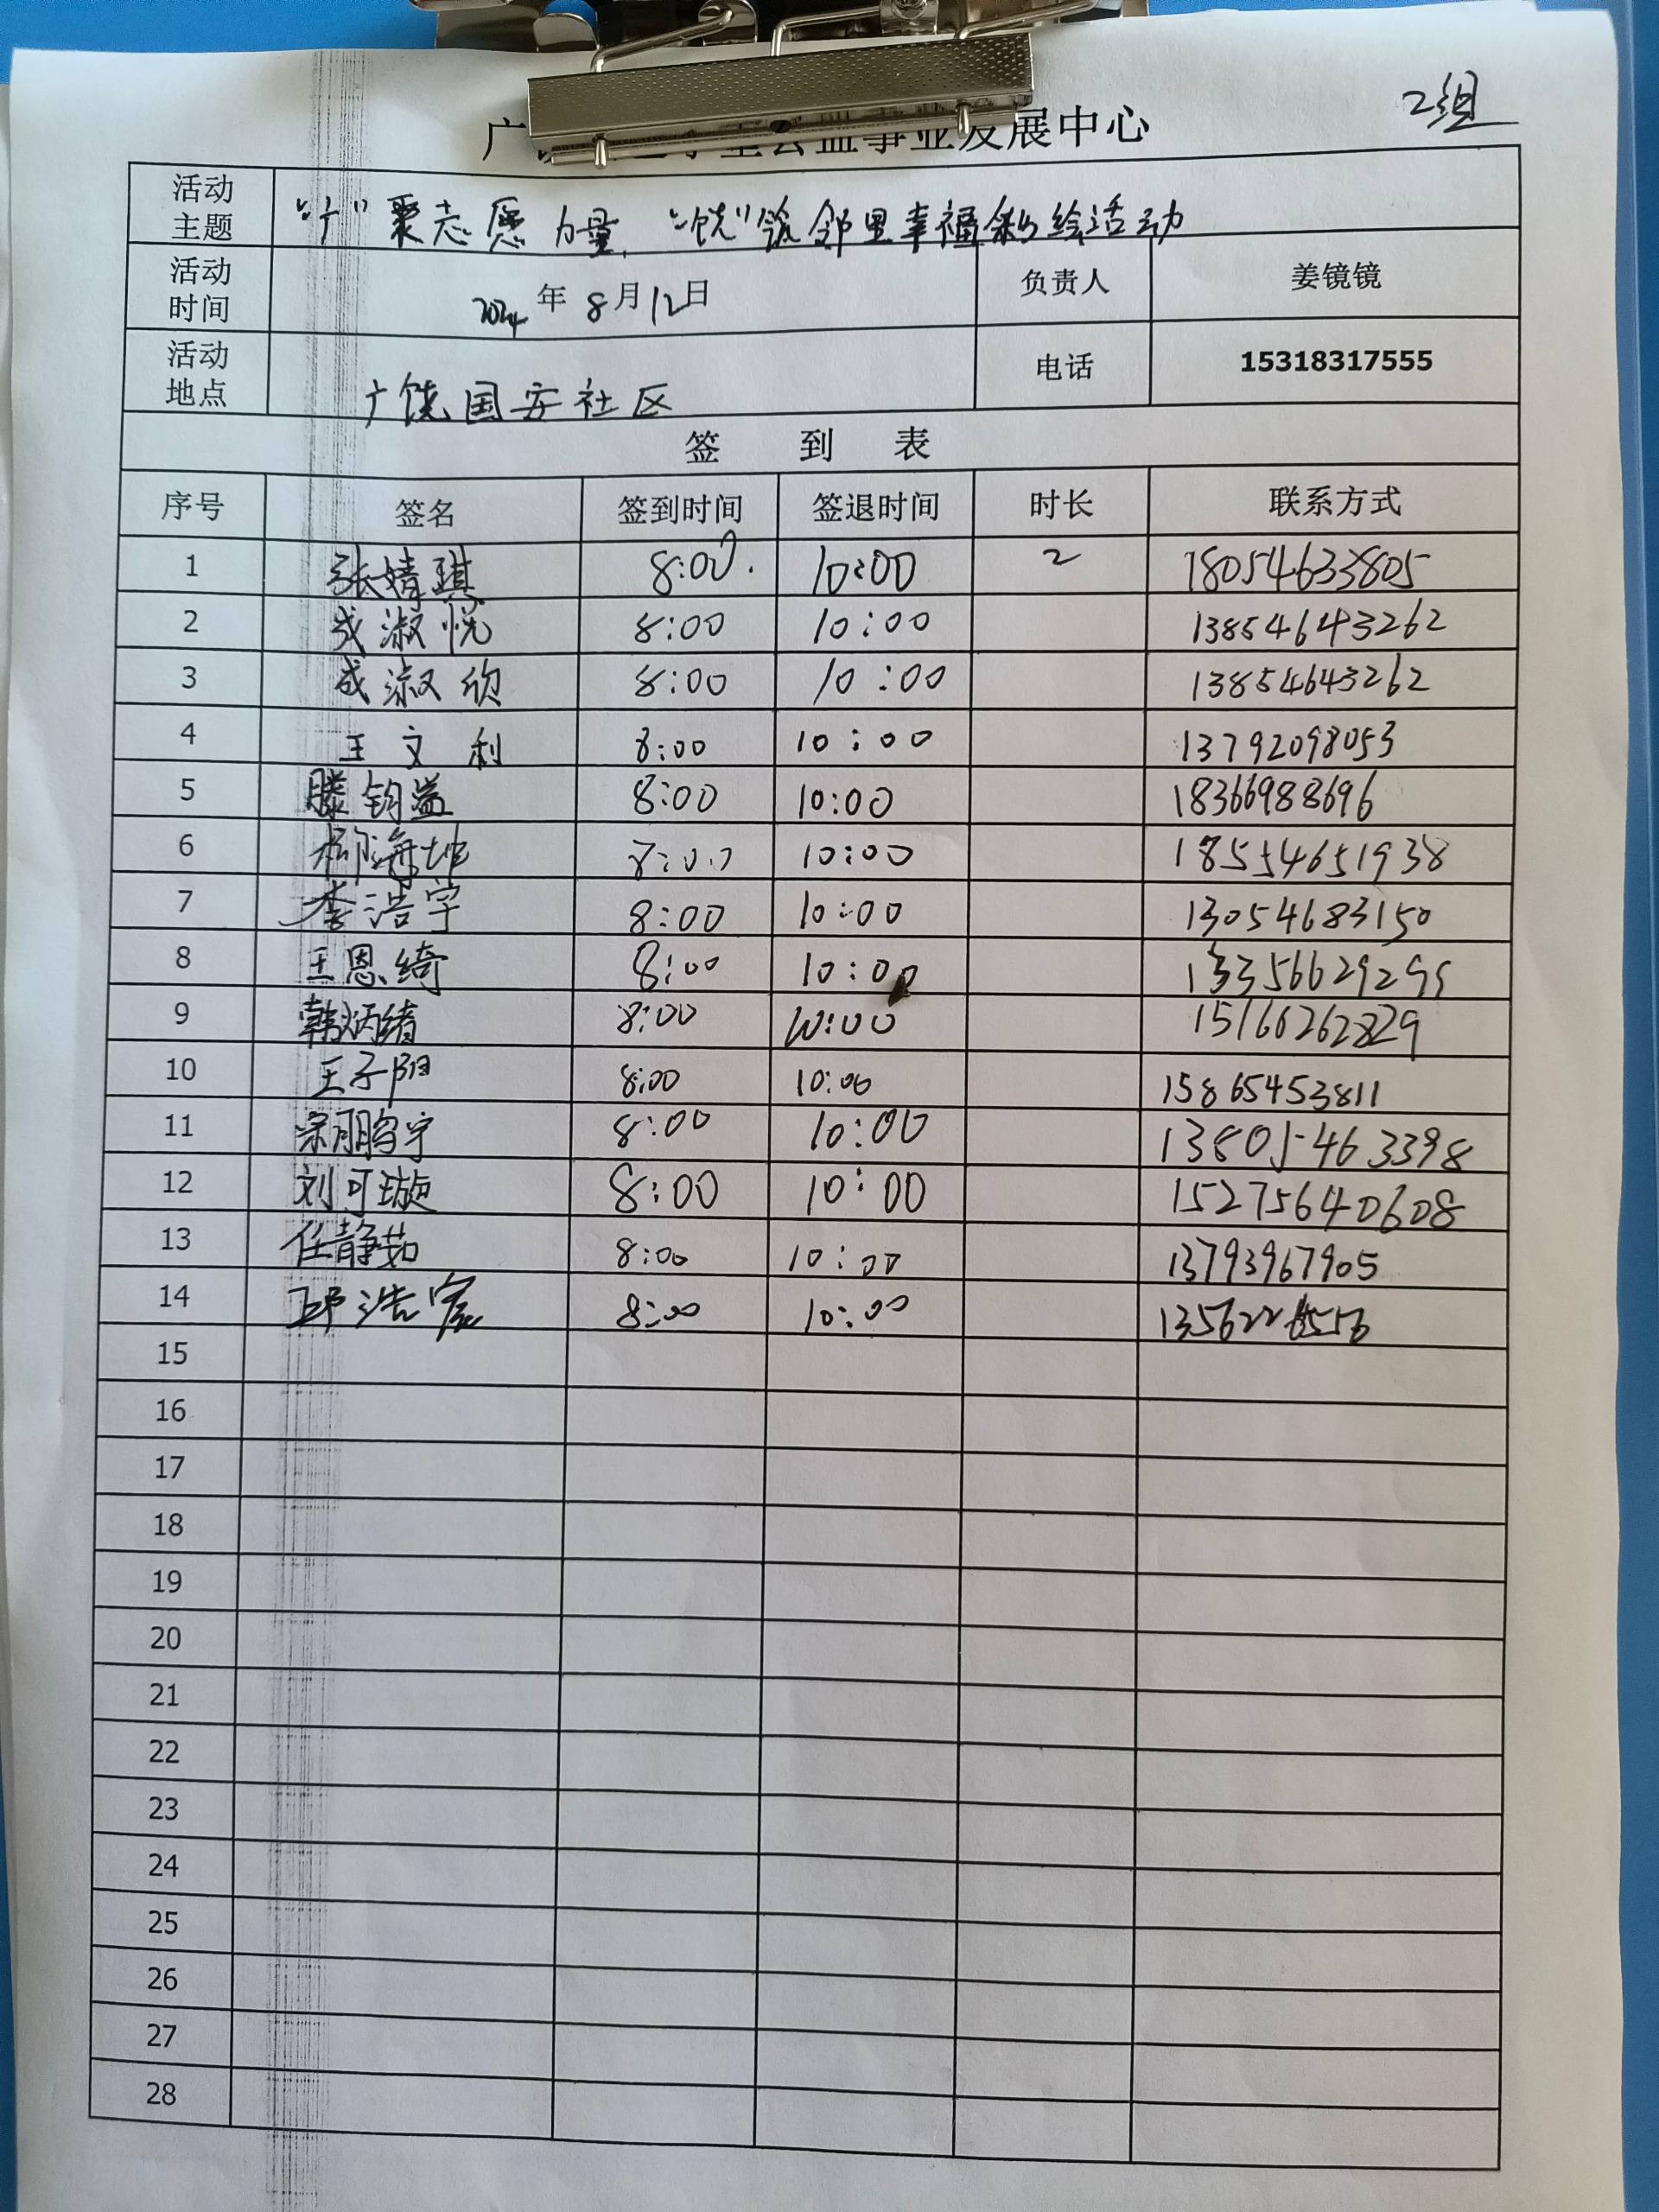 2组
广 公益事业发展中心
活动主题 “广”聚志愿力量,“饶”筑邻里幸福彩绘活动
活动时间 2024年8月12日 负责人 姜镜镜
活动地点 广饶国安社区 电话 15318317555
签 到 表
序号 签名 签到时间 签退时间 时长 联系方式
1 张婧琪 8:00. 10:00 2 18054633805
2 成淑悦 8:00 10:00 13854643262
3 成淑欣 8:00 10:00 13854643262
4 王文利 8:00 10:00 13792098053
5 滕钧益 8:00 10:00 18366988696
6 8:00 10:00 18554651938
7 李浩宇 8:00 10:00 13054683150
8 王恩绮 8:00 10:00 13356629299
9 韩炳绪 8:00 10:00 15166262829
10 王子阳 8:00 10:00 15865453811
11 宗鹏宇 8:00 10:00 13805463398
12 刘可璇 8:00 10:00 15275640608
13 任静茹 8:00 10:00 13793967905
14 浩宸 8:00 10:00
15
16
17
18
19
20
21
22
23
24
25
26
27
28